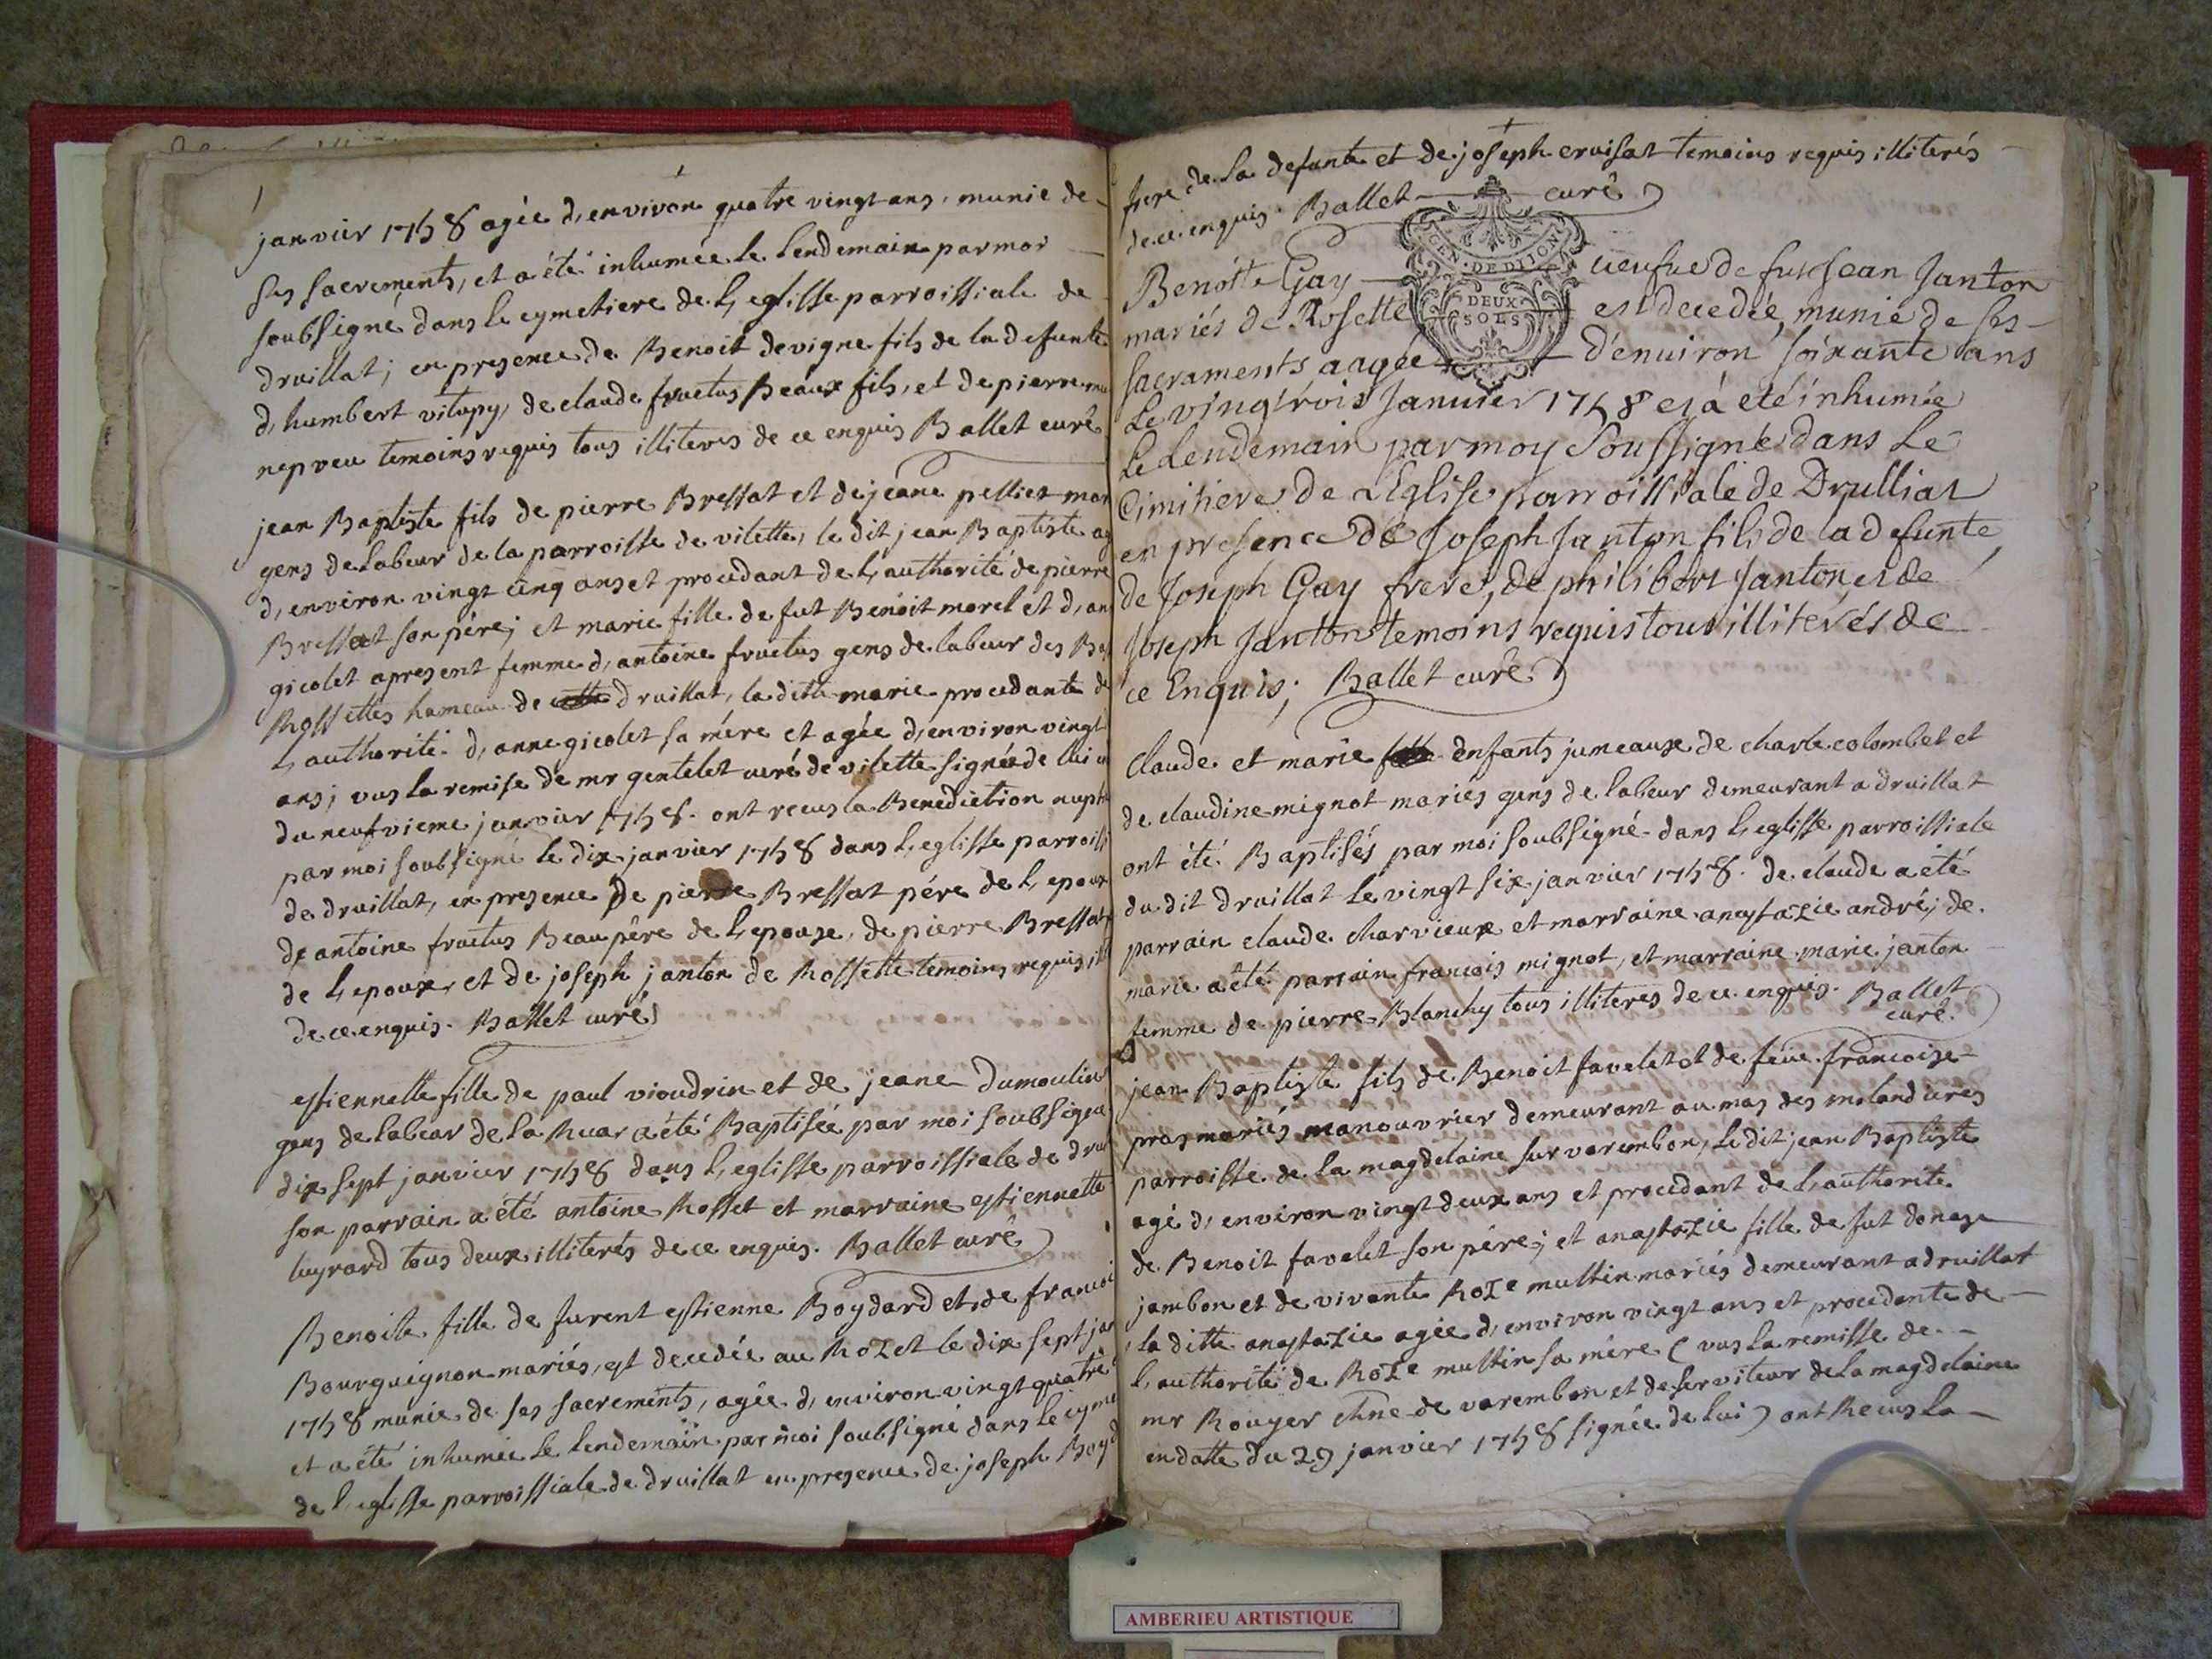 janvier 1758 agée d'environ quatre vingt ans, munie de
ses sacrements, et a été inhumée le lendemain par moi
soubsigné dans le cymetiere de l'eglisse parroissiale de
druillat; en presence de Benoit devigne fils de la defunte
d'humbert vitupy, de claude fructus Beaux fils, et de pierre
nepveu temoins requis tous illiterés de ce enquis Ballet curé
jean Baptiste fils de pierre Bressat et de jeane pelliet mar
gens de labeur de la parroisse de vilette, le dit jean Baptiste ag
d'environ vingt cinq ans et procedant de l'authorité de pierre
Bressat son pére; et marie fille de fut Benoit morel et d'an
gicolet apresent femme d'antoine fructus gens de labeur des
Rossettes hameau de druillat, la ditte marie procedante de
l'authorité d'anne gicolet sa mére et agée d'environ vingt
ans; vus la remise de mr gentelet curé de vilette signée de lui
du neufvieme janvier 1758. ont recus la Benediction nupti
par moi soubsigné le dix janvier 1758 dans l'eglisse parroissi
de druillat, en presence de pierre Bressat pére de l'epoux
de antoine fructus Beau pére de l'epouse, de pierre Bressat
de l'epoux, et de joseph janton de Rossette temoins requis ill
de ce enquis. Ballet curé
estiennette fille de paul vioudrin et de jeane dumoulin
gens de labeur de la Ruaz a été Baptisée par moi soubsigné
dix sept janvier 1758 dans l'eglisse parroissiale de dru
son parrain a été antoine Rosset et marraine estiennette
luyrard tous deux illiterés de ce enquis. Ballet curé
Benoite fille de furent estienne Boydard et de francoi
Bourguignon mariés, est decedée au Rozet le dix sept jan
1758 munie de ses sacrements, agée d'environ vingt quatre
et a été inhumée le lendemain par moi soubsigné dans le cyme
de l'eglisse parroissiale de druillat en presence de joseph Boyd
frere de la defunte et de joseph cruisat temoins requis illiterés
de ce enquis. Ballet curé
GEN. DE DIJON
DEUX
SOLS
Benoite Gay veusve de fut Jean Janton
mariés de Rosette est decedée, munie de ses
sacraments aagée d'environ soixante ans
Le vingtrois Janvier 1758 et a eté inhumée
le Lendemain par moy Soussigné dans Le
Cimitiere de L'Eglise parroissiale de Drulliat
en presence de Joseph Janton fils de la defunte
de Joseph Gay frere, de philibert Janton, et de
Joseph Janton temoins requis tous illiterés de
ce Enquis; Ballet curé
claude et marie enfants jumeaux de charle colombet et
de claudine mignot mariés gens de labeur demeurant a druillat
ont été Baptisés par moi soubsigné dans l'eglisse parroissiale
du dit druillat le vingt six janvier 1758. de claude a été
parrain claude charvieux et marraine anastazie andré; de
marie a été parrain francois mignot, et marraine marie janton
femme de pierre Blanchy tous illiteres de ce enquis. Ballet
curé.
jean Baptiste fils de Benoit favelet et de feüe francoise
pras mariés manouvrier demeurant au mas des molandieres
parroisse de la magdelaine sur varembon, le dit jean Baptiste
agé d'environ vingt deux ans et procedant de l'authorité
de Benoit favelet son pére; et anastazie fille de fut donaze
jambon et de vivante Roze multin mariés demeurant a druillat
la ditte anastazie agée d'environ vingt ans et procedente de
l'authorité de Roze multin sa mére (vus la remisse de
mr Rouyer chne de varembon et deserviteur de la magdelaine
en datte du 29 janvier 1758 signée de lui) ont Recus la
AMBERIEU ARTISTIQUE